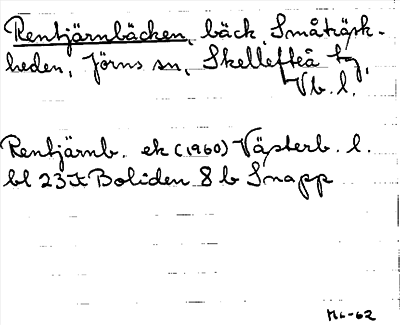 Rentjärnbäcken, bäck, Småträsk-
heden, Jörns sn, Skellefteå tg,
Vb. l.
Rentjärnb. ek (1960) Västerb. l.
bl 23 K Boliden 8 b Snapp